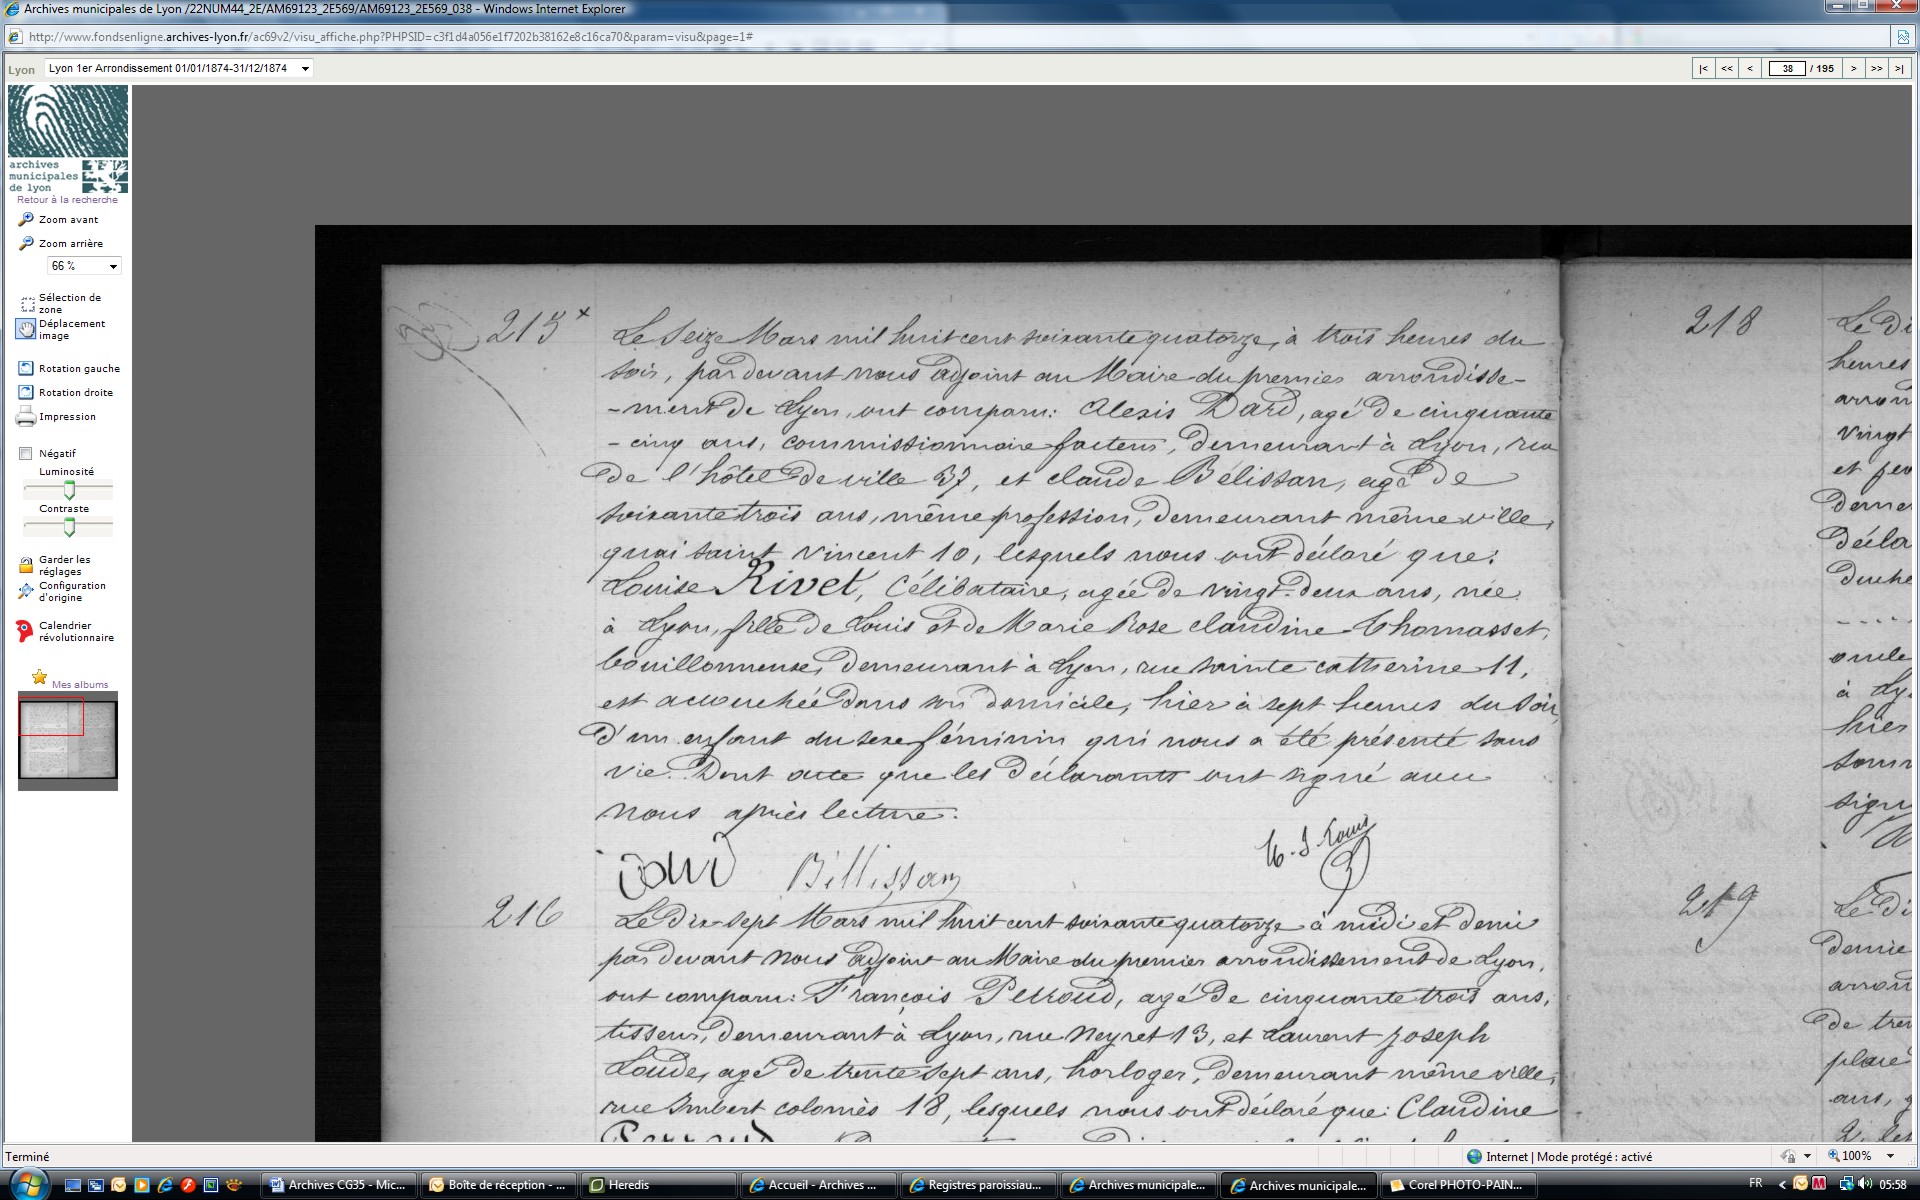 Archives municipales de Lyon /22NUM44_2E/AM69123_2E569/AM69123_2E569_038 - Windows Internet Explorer
http://www.fondsenligne.archives-lyon.fr/ac69v2/visu_affiche.php?PHPSID=c3f1d4a056e1f7202b38162e8c16ca70&param=visu&page=1#
Lyon
Lyon 1er Arrondissement 01/01/1874-31/12/1874
|< << < 38 / 195 > >> >|
archives
municipales
de Lyon
Retour à la recherche
Zoom avant
Zoom arrière
66 %
Sélection de
zone
Déplacement
image
Rotation gauche
Rotation droite
Impression
Négatif
Luminosité
Contraste
Garder les
réglages
Configuration
d'origine
Calendrier
révolutionnaire
Mes albums
215 x
Le Seize Mars mil huit cent soixante quatorze, à trois heures du
soir, par devant nous adjoint au Maire du premier arrondisse-
-ment de Lyon, ont comparu: Alexis Dard, agé de cinquante
-cinq ans, commissionnaire facteur, demeurant à Lyon, rue
de l'hôtel de ville 37, et claude Bélissan, agé de
soixante trois ans, même profession, demeurant même ville,
quai saint Vincent 10, lesquels nous ont déclaré que:
Louise Rivet, Célibataire, agée de vingt-deux ans, née
à Lyon, fille de Louis et de Marie Rose claudine Thomasset,
bouillonneuse, demeurant à Lyon, rue sainte catherine 11,
est accouchée dans son domicile, hier à sept heures du soir,
d'un enfant du sexe féminin qui nous a été présenté sans
vie. Dont acte que les déclarants ont signé avec
nous après lecture.
Dard Billissan
216
Le dix-sept Mars mil huit cent soixante quatorze à midi et demi
par devant Nous adjoint au Maire du premier arrondissement de Lyon,
ont comparu: François Perroud, agé de cinquante trois ans,
tisseur, demeurant à Lyon, rue Neyret 13, et Laurent Joseph
Loude, agé de trente sept ans, horloger, demeurant même ville,
rue Imbert colomès 18, lesquels nous ont déclaré que: Claudine
218
Le di
heures
arron
vingt
et
deme
décla
onde
à Ly
hier
somm
sign
219
Le di
demie
arron
de tre
place
ans,
Terminé
Internet | Mode protégé : activé
100%
Archives CG35 - Mic...
Boîte de réception - ...
Heredis
Accueil - Archives ...
Registres paroissiau...
Archives municipale...
Archives municipale...
Corel PHOTO-PAIN...
FR
05:58